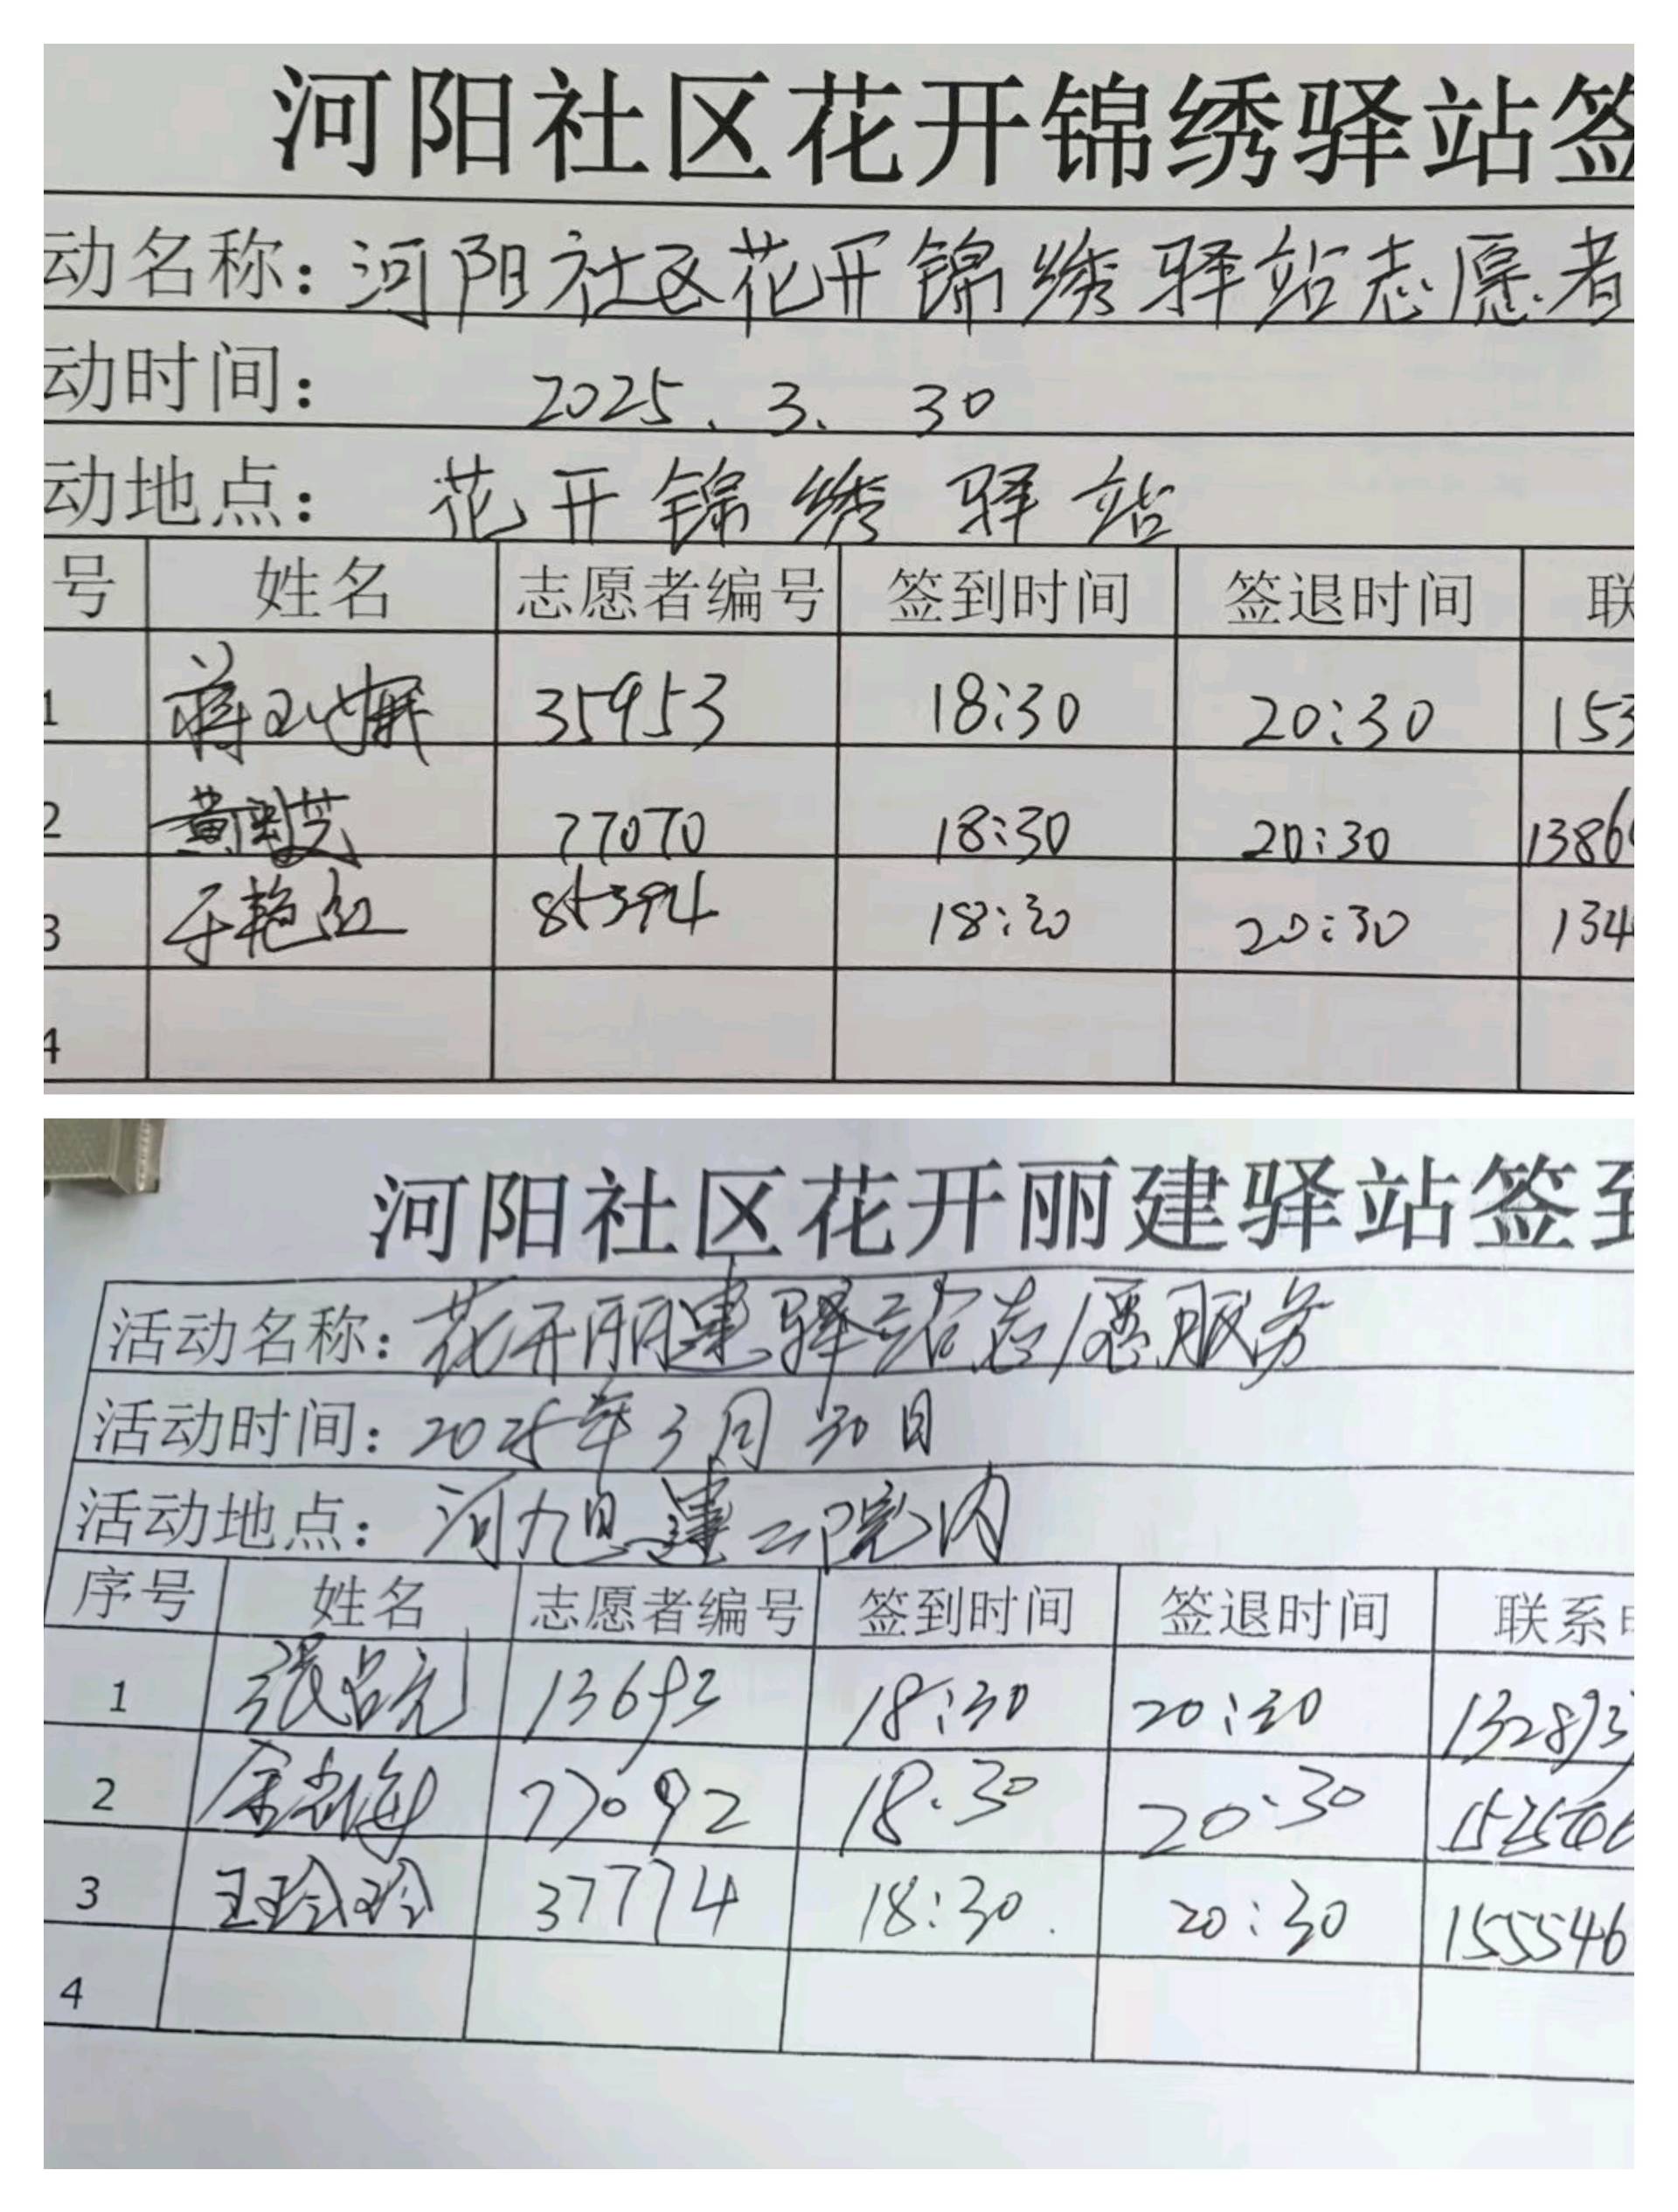 河阳社区花开锦绣驿站签
动名称：河阳社区花开锦绣驿站志愿者
动时间： 2025.3.30
动地点： 花开锦绣驿站
号 姓名 志愿者编号 签到时间 签退时间 联
1 35953 18:30 20:30 153
2 77070 18:30 20:30 1386
3 于艳红 85394 18:30 20:30 134
4
河阳社区花开丽建驿站签到
活动名称：花开丽建驿站志愿服务
活动时间：2025年3月30日
活动地点：河 建二院内
序号 姓名 志愿者编号 签到时间 签退时间 联系
1 13693 18:30 20:30
2 77092 18:30 20:30
3 王玲玲 37774 18:30 20:30 155546
4